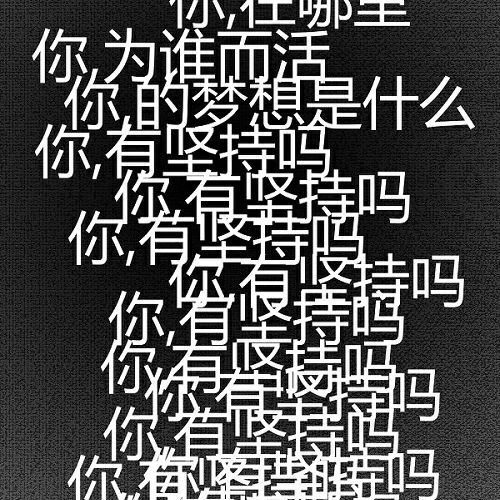 你,在哪里
你,为谁而活
你,的梦想是什么
你,有坚持吗
你,有坚持吗
你,有坚持吗
你,有坚持吗
你,有坚持吗
你,有坚持吗
你,有坚持吗
你,有坚持吗
你,有坚持吗
你,有坚持吗